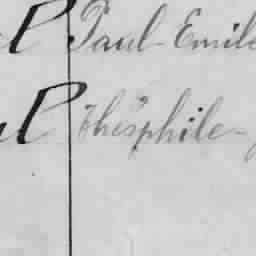 l Paul-Emile
l Théophile-